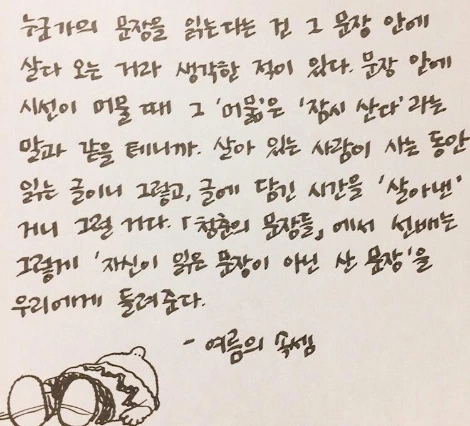 누군가의 문장을 읽는다는 건 그 문장 안에
살다 오는 거라 생각한 적이 있다. 문장 안에
시선이 머물 때 그 '머묾'은 '잠시 산다'라는
말과 같을 테니까. 살아 있는 사람이 사는 동안
읽는 글이니 그렇고, 글에 담긴 시간을 '살아낸'
거니 그럴 거다. 「청춘의 문장들」에서 선배는
그렇게 '자신이 읽은 문장이 아닌 산 문장'을
우리에게 들려준다.
- 여름의 속셈